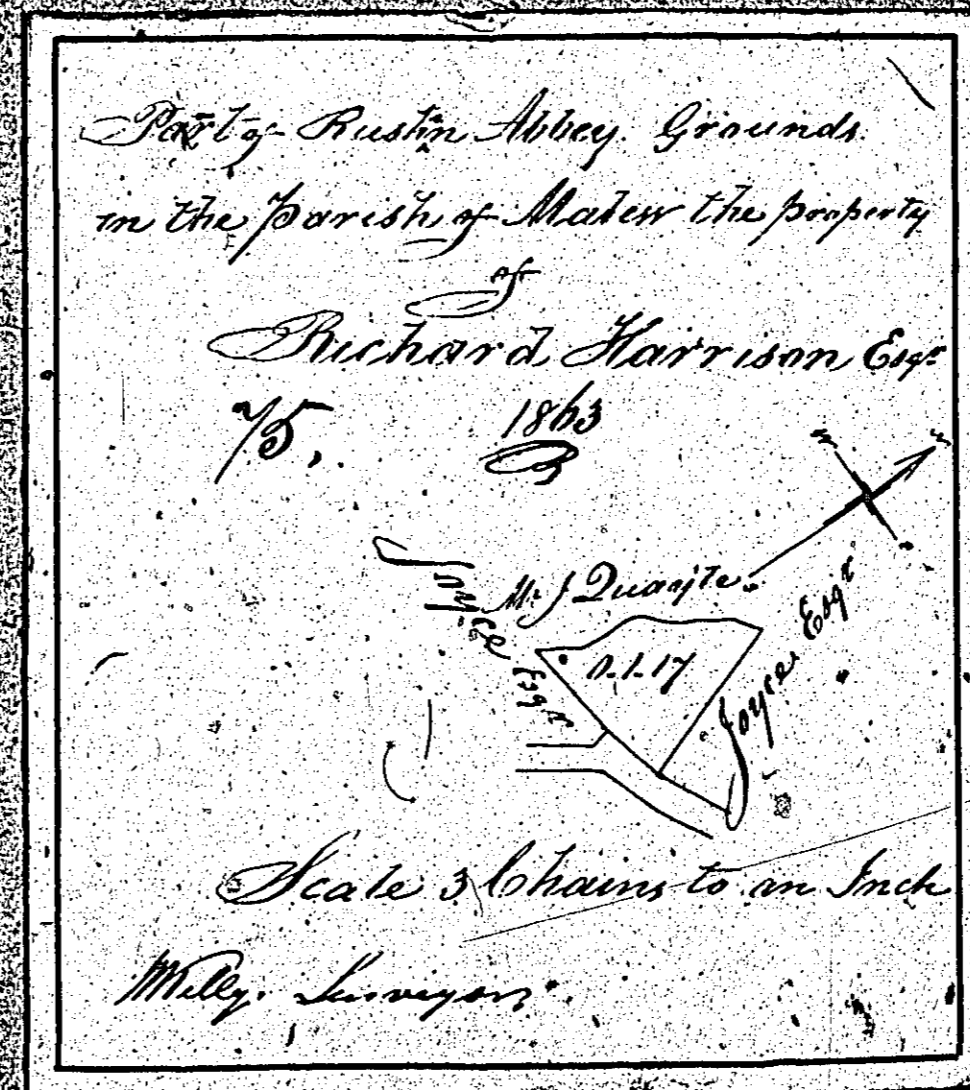 Part of Rushin Abbey Grounds
in the Parish of Malew the property
of
Richard Harrison Esqr
75, 1863
N
Mr J Quayle
Joyce Esqr
Joyce Esqr
0.1.17
Scale 3 Chains to an Inch
Surveyor